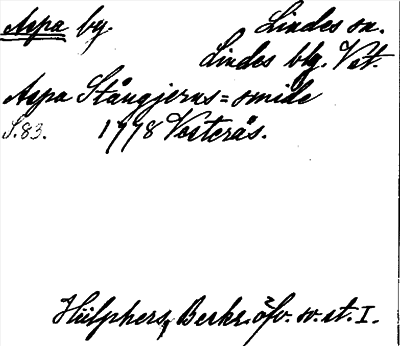 Aspa by. Lindes sn.
Lindes blg. Vst.
Aspa Stångjerns=smide
S.83. 1778 Vesterås.
Hülphers, Beskr. öfv. sv. st. I.